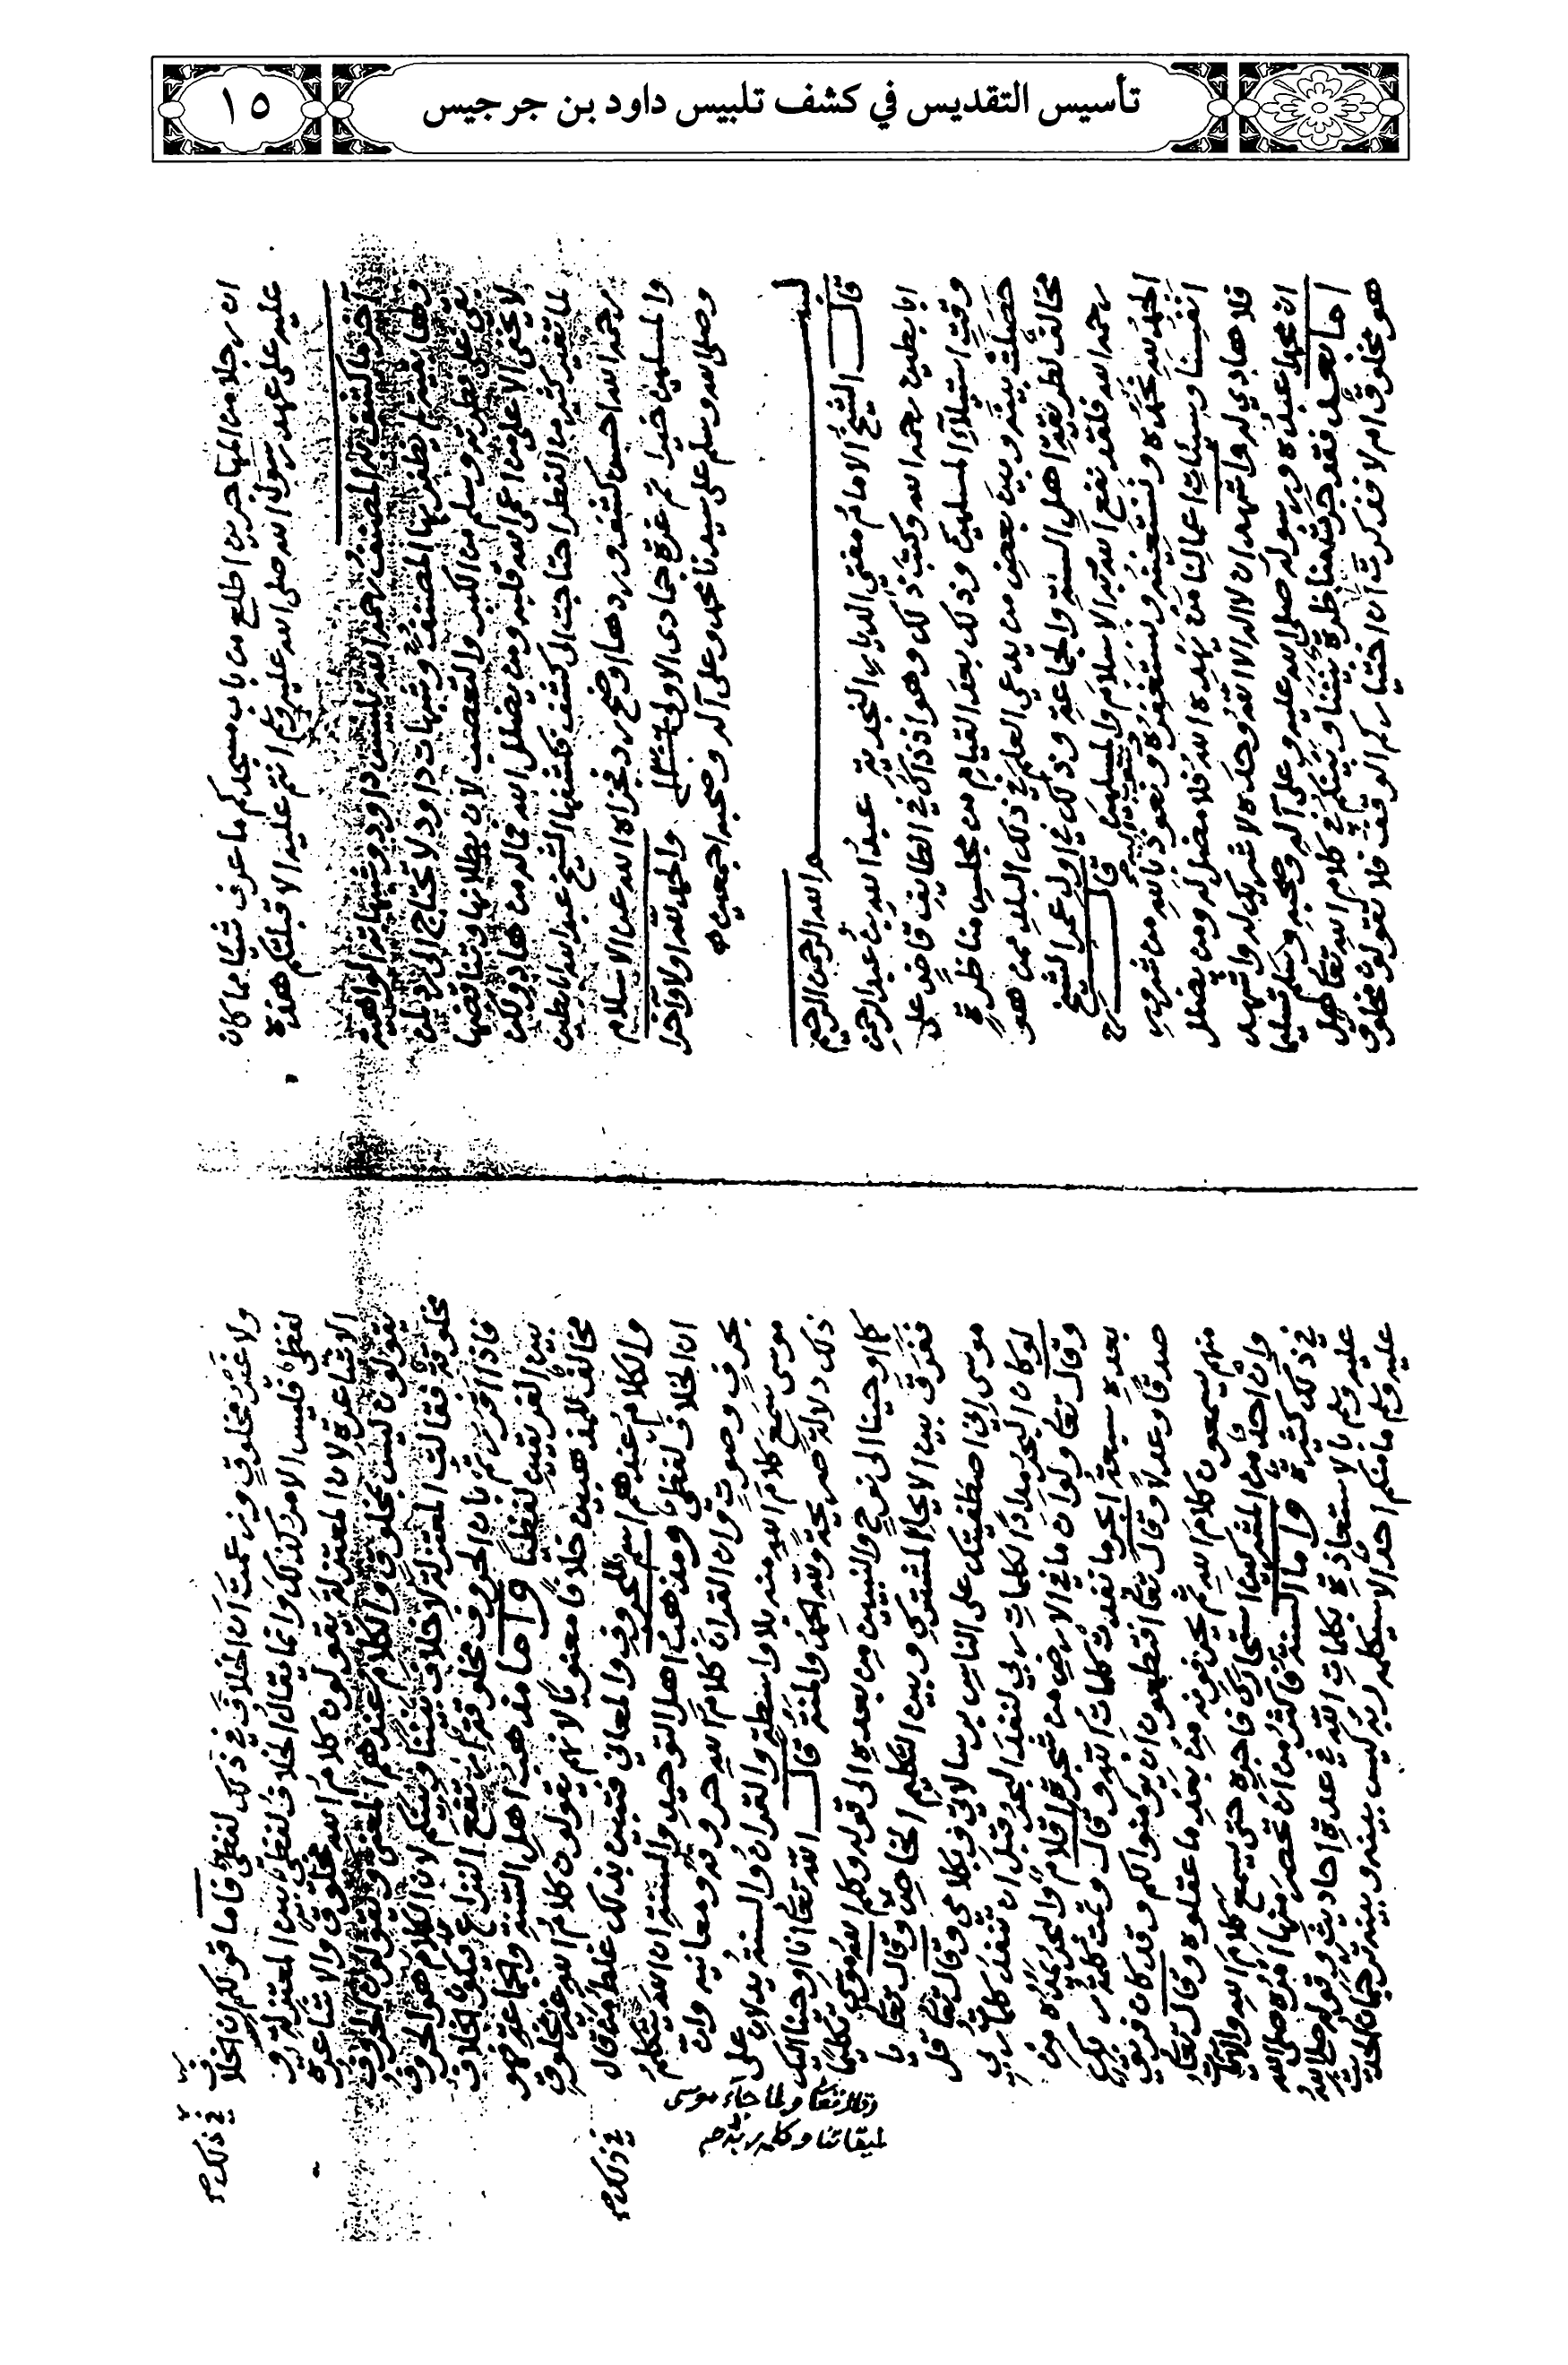 تأسيس التقديس في كشف تلبيس داود بن جرجيس
١٥
ان رجلا من المهاجرين اطلع من باب مسجدكم ما عرف شيئا مما كان
عليه على عهد رسول الله صلى الله عليه وسلم انتم عليه الا قبلتكم هذه
آخر ما كشف به المصنف رحمه الله تلبيس داود وشبهاته الواهية
لا يخفى الا على من اعمى الله قلبه ومن يضلل الله فما له من هاد ولكن
لما تغير كثير من الفطر احتاجت الى كشف فكشفها الشيخ عبد الله ابا بطين
رحمه الله احسن كشف وردها اوضح رد فجزاه الله عن الاسلام
والمسلمين خيرا تم غرة جمادى الاولى والحمد لله اولا وآخرا
وصلى الله وسلم على سيدنا محمد وعلى آله وصحبه اجمعين
بسم الله الرحمن الرحيم
قال الشيخ الامام مفتي الديار النجدية عبد الله بن عبد الرحمن
ابا بطين رحمه الله وكتب ذلك وهو اذ ذاك في الطايف قاض على
وقت استيلاء المسلمين وذلك بعد القيام من مجلس مناظرة
حصلت بينه وبين بعض من يدعي العلم في ذلك البلد ممن هو
مخالف لطريقة اهل السنة والجماعة وذلك في اول عمر الشيخ
رحمه الله فلقد نفع الله به الاسلام والمسلمين قال
الحمد لله نحمده ونستعينه ونستغفره ونعوذ بالله من شرور
انفسنا وسيئات اعمالنا من يهده الله فلا مضل له ومن يضلل
فلا هادي له واشهد ان لا اله الا الله وحده لا شريك له واشهد
ان محمدا عبده ورسوله صلى الله عليه وعلى آله وصحبه وسلم تسليما
اما بعد فقد جرت مناظرة بيننا وبينكم في كلام الله تعالى هل
هو مخلوق ام لا فذكرت ان اختياركم الوقف فلا تقولون مخلوق
ولا غير مخلوق وزعمت ان الخلاف في ذلك لفظي فاما قولكم ان الخلاف
في ذلك
لفظي فليس الامر كذلك وانما يقال الخلاف لفظي بين المعتزلة و
الاشاعرة لان المعتزلة يقولون كلام الله مخلوق والاشاعرة
يقولون ليس بمخلوق والكلام عندهم المعنى ويقولون الحروف
مخلوقة فقالت المعتزلة لا خلاف بيننا وبينكم لان الكلام هو الحروف
فاذا اقررتم بان الحروف مخلوقة ارتفع النزاع فيكون الخلاف
بين الفريقين لفظيا واما مذهب اهل السنة والجماعة فهو
مخالف للمذهبين خلافا معنويا لانهم يقولون كلام الله غير مخلوق
والكلام عندهم اسم للحروف والمعاني فتبين بذلك غلط من قال
ان الخلاف لفظي ومذهب اهل التوحيد والسنة ان الله يتكلم
في ذلك
بحرف وصوت وان القرآن كلام الله حروفه ومعانيه وان
موسى سمع كلام الله منه بلا واسطة والقرآن والسنة يدلان على
ذلك دلالة صريحة ولله الحمد والمنة قال الله تعالى انا اوحينا اليك
كما اوحينا الى نوح والنبيين من بعده الى قوله وكلم الله موسى تكليما
وقال تعالى ولما جاء موسى
لميقاتنا وكلمه ربه
ففرق بين الايحاء المشترك وبين التكليم الخاص وقال تعالى يا
موسى اني اصطفيتك على الناس برسالاتي وبكلامي وقال تعالى قل
لو كان البحر مدادا لكلمات ربي لنفد البحر قبل ان تنفد كلمات ربي
وقال تعالى ولو ان ما في الارض من شجرة اقلام والبحر يمده من
بعده سبعة ابحر ما نفدت كلمات الله وقال وتمت كلمة ربك
صدقا وعدلا وقال تعالى افتطمعون ان يؤمنوا لكم وقد كان فريق
منهم يسمعون كلام الله ثم يحرفونه من بعد ما عقلوه وقال تعالى
وان احد من المشركين استجارك فاجره حتى يسمع كلام الله
في ذلك كثيرة واما السنة فاكثر من ان تحصر منها امره صلى الله
عليه وسلم بالاستعاذة بكلمات الله في عدة احاديث وقوله صلى الله
عليه وسلم ما منكم احد الا سيكلمه ربه ليس بينه وبينه ترجمان الحديث